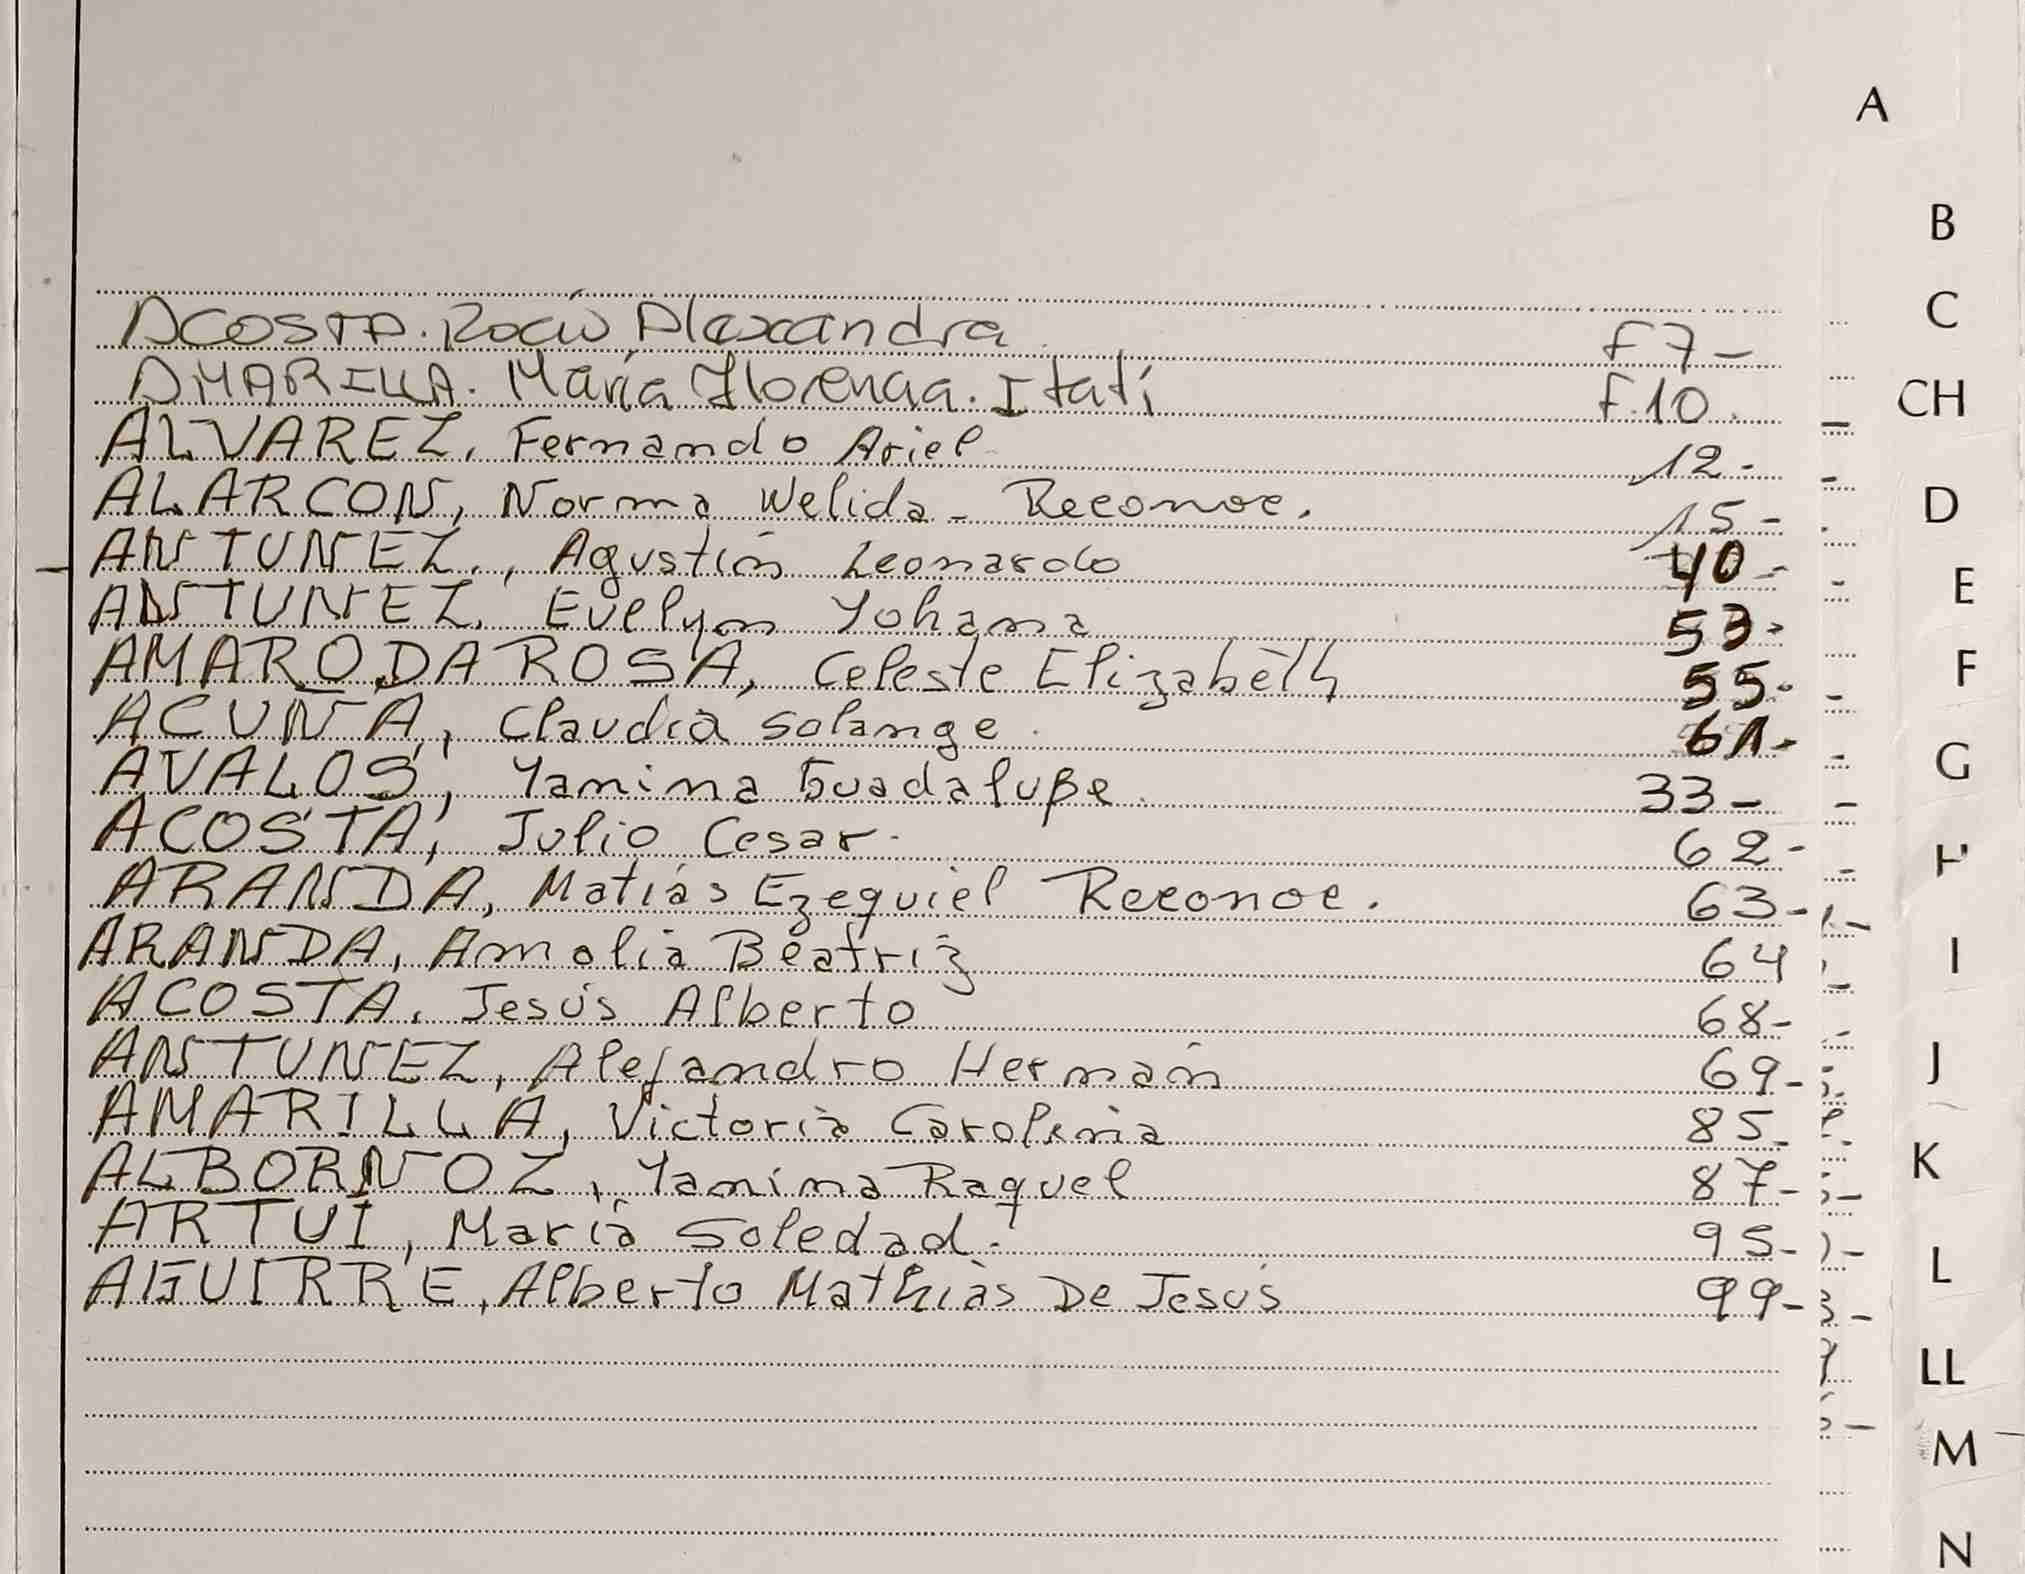 A
B
C
CH
D
E
F
G
H
I
J
K
L
LL
M
N
ACOSTA. Rocío Alexandra F7-
AMARILLA. María Florencia. Itatí F.10.
ALVAREZ, Fernando Ariel 12-
ALARCON, Norma Welida - Reconoc. 15-
ANTUNEZ., Agustín Leonardo 40-
ANTUNEZ, Evelyn Yohana 53-
AMARO DA ROSA, Celeste Elizabeth 55-
ACUÑA, Claudia Solange. 61-
AVALOS, Yanina Guadalupe. 33-
ACOSTA, Julio Cesar. 62-
ARANDA, Matías Ezequiel Reconoc. 63-
ARANDA, Amalia Beatriz 64
ACOSTA, Jesús Alberto 68-
ANTUNEZ, Alejandro Hernán 69-
AMARILLA, Victoria Carolina 85-
ALBORNOZ, Yanina Raquel 87-
ARTUI, María Soledad. 95-
AGUIRRE, Alberto Mathías De Jesús 99-